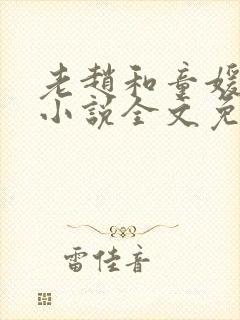 老趙和童媛
小說全文免
雷佳音